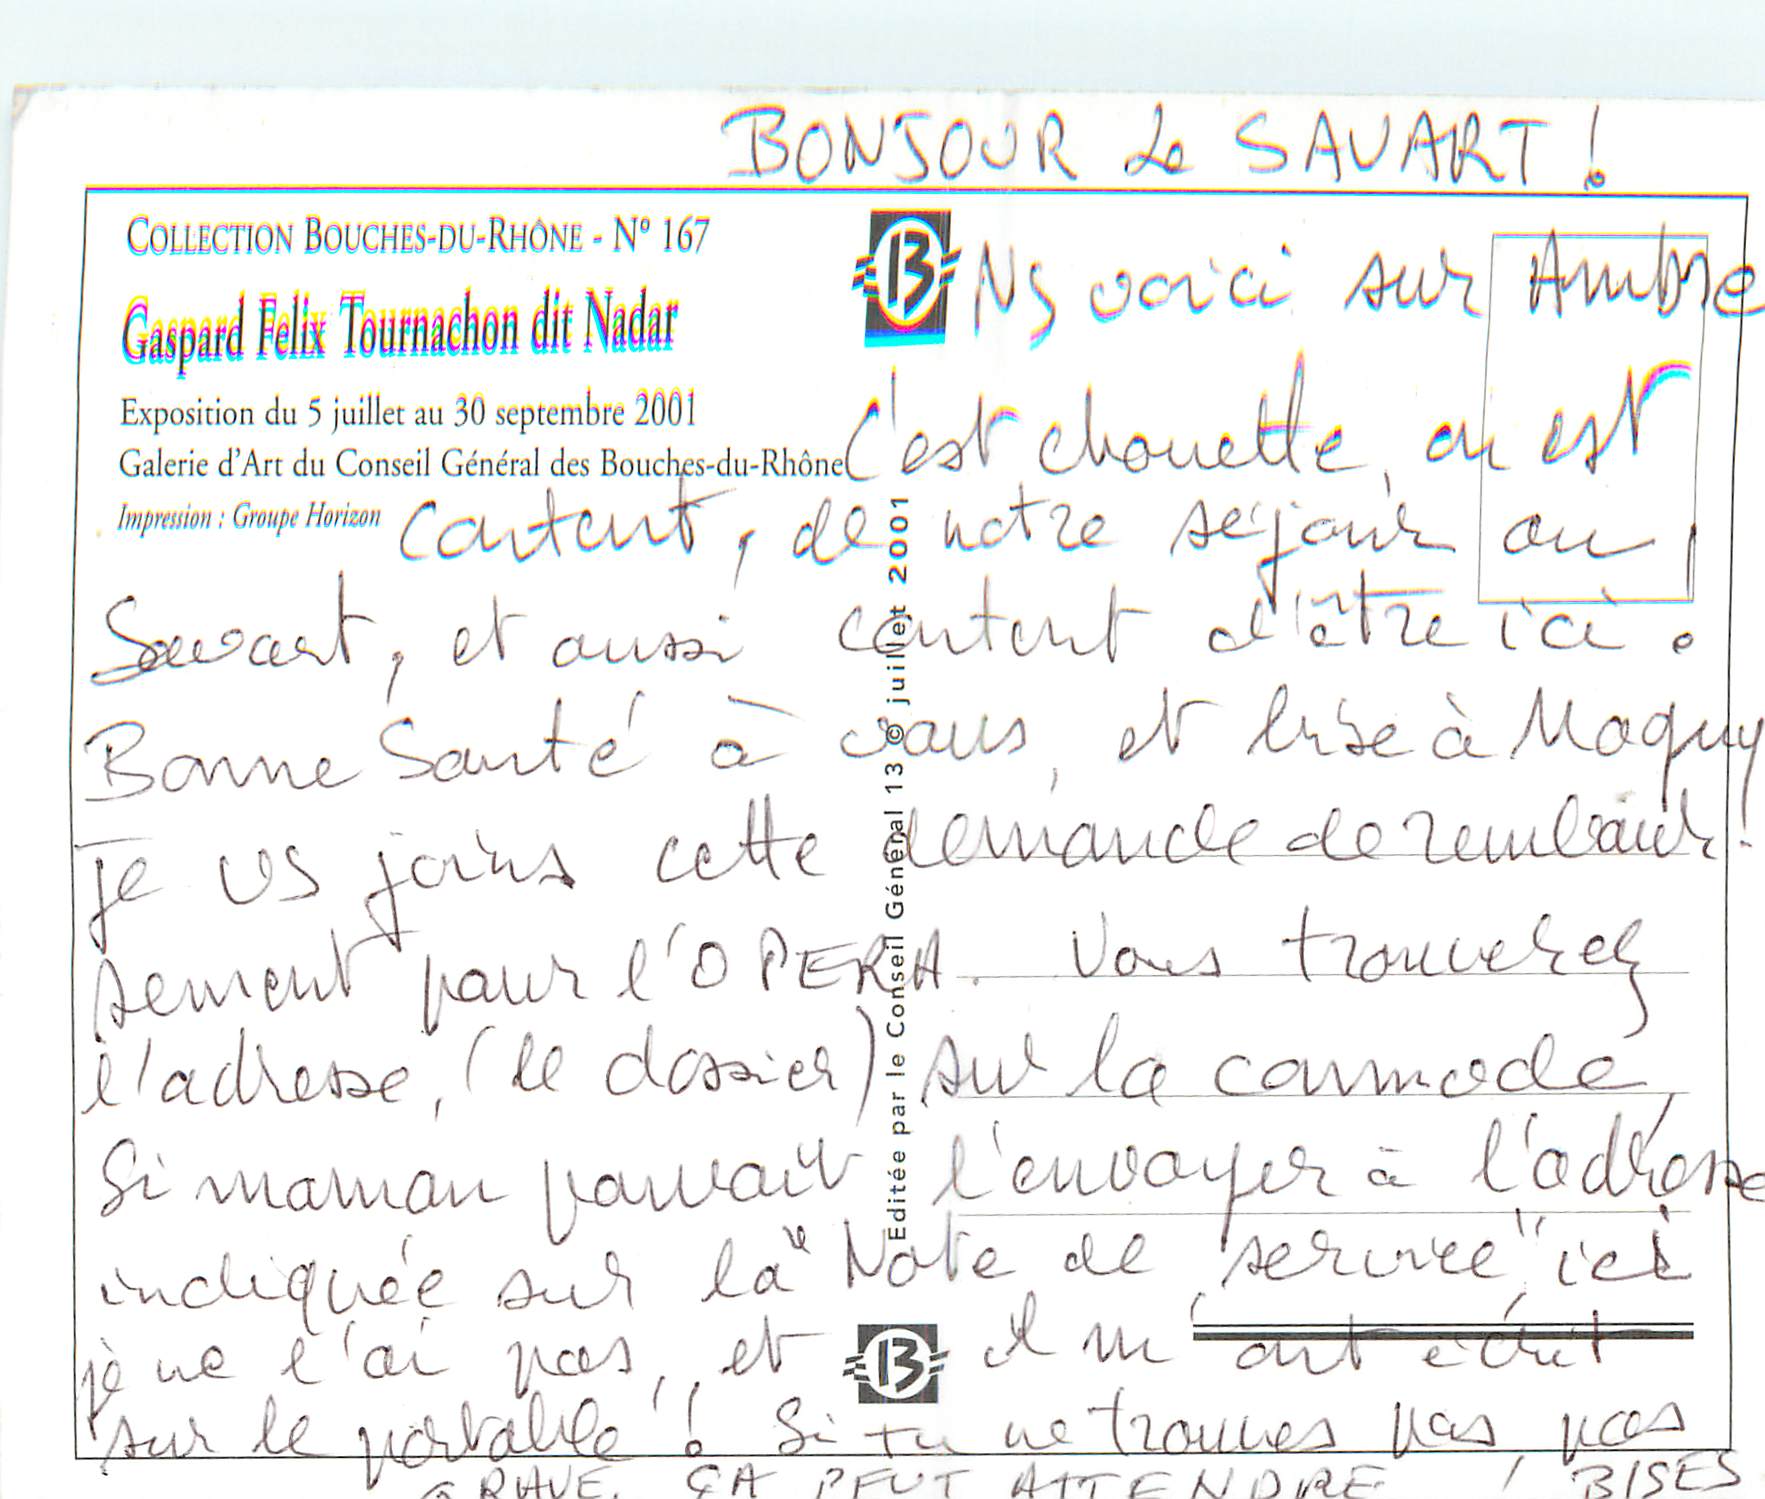 BONJOUR Le SAVART !
COLLECTION BOUCHES-DU-RHÔNE - N° 167
Gaspard Felix Tournachon dit Nadar
Exposition du 5 juillet au 30 septembre 2001
Galerie d'Art du Conseil Général des Bouches-du-Rhône
Impression : Groupe Horizon
13
Ns voici sur Ambre
C'est chouette, on est
content, de notre séjour au
Savart, et aussi content d'être ici.
Bonne Santé à vous, et bise à Maguy
je vs joins cette demande de rembour
sement pour l'OPERA. Vous trouverez
l'adresse, (le dossier) sur la commode,
Si maman pouvait l'envoyer à l'adresse
indiquée sur la "Note de service" ici
je ne l'ai pas, et il m'ont écrit
sur le portable ! Si tu ne trouves pas, pas
GRAVE, ÇA PEUT ATTENDRE ! BISES
Editée par le Conseil Général 13 © juillet 2001
13